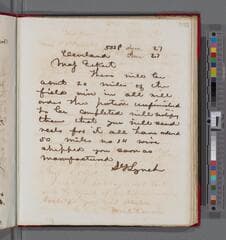 508P Jan 27
Cleveland Jan 27
Maj Eckert
There will be
about 20 miles of the
field wire in all will
order the portion unfinished
to be completed will notify
them that you will send
reels for it all have
50 miles no 14 wire
shipped you soon as
manufactured
S G Lynch